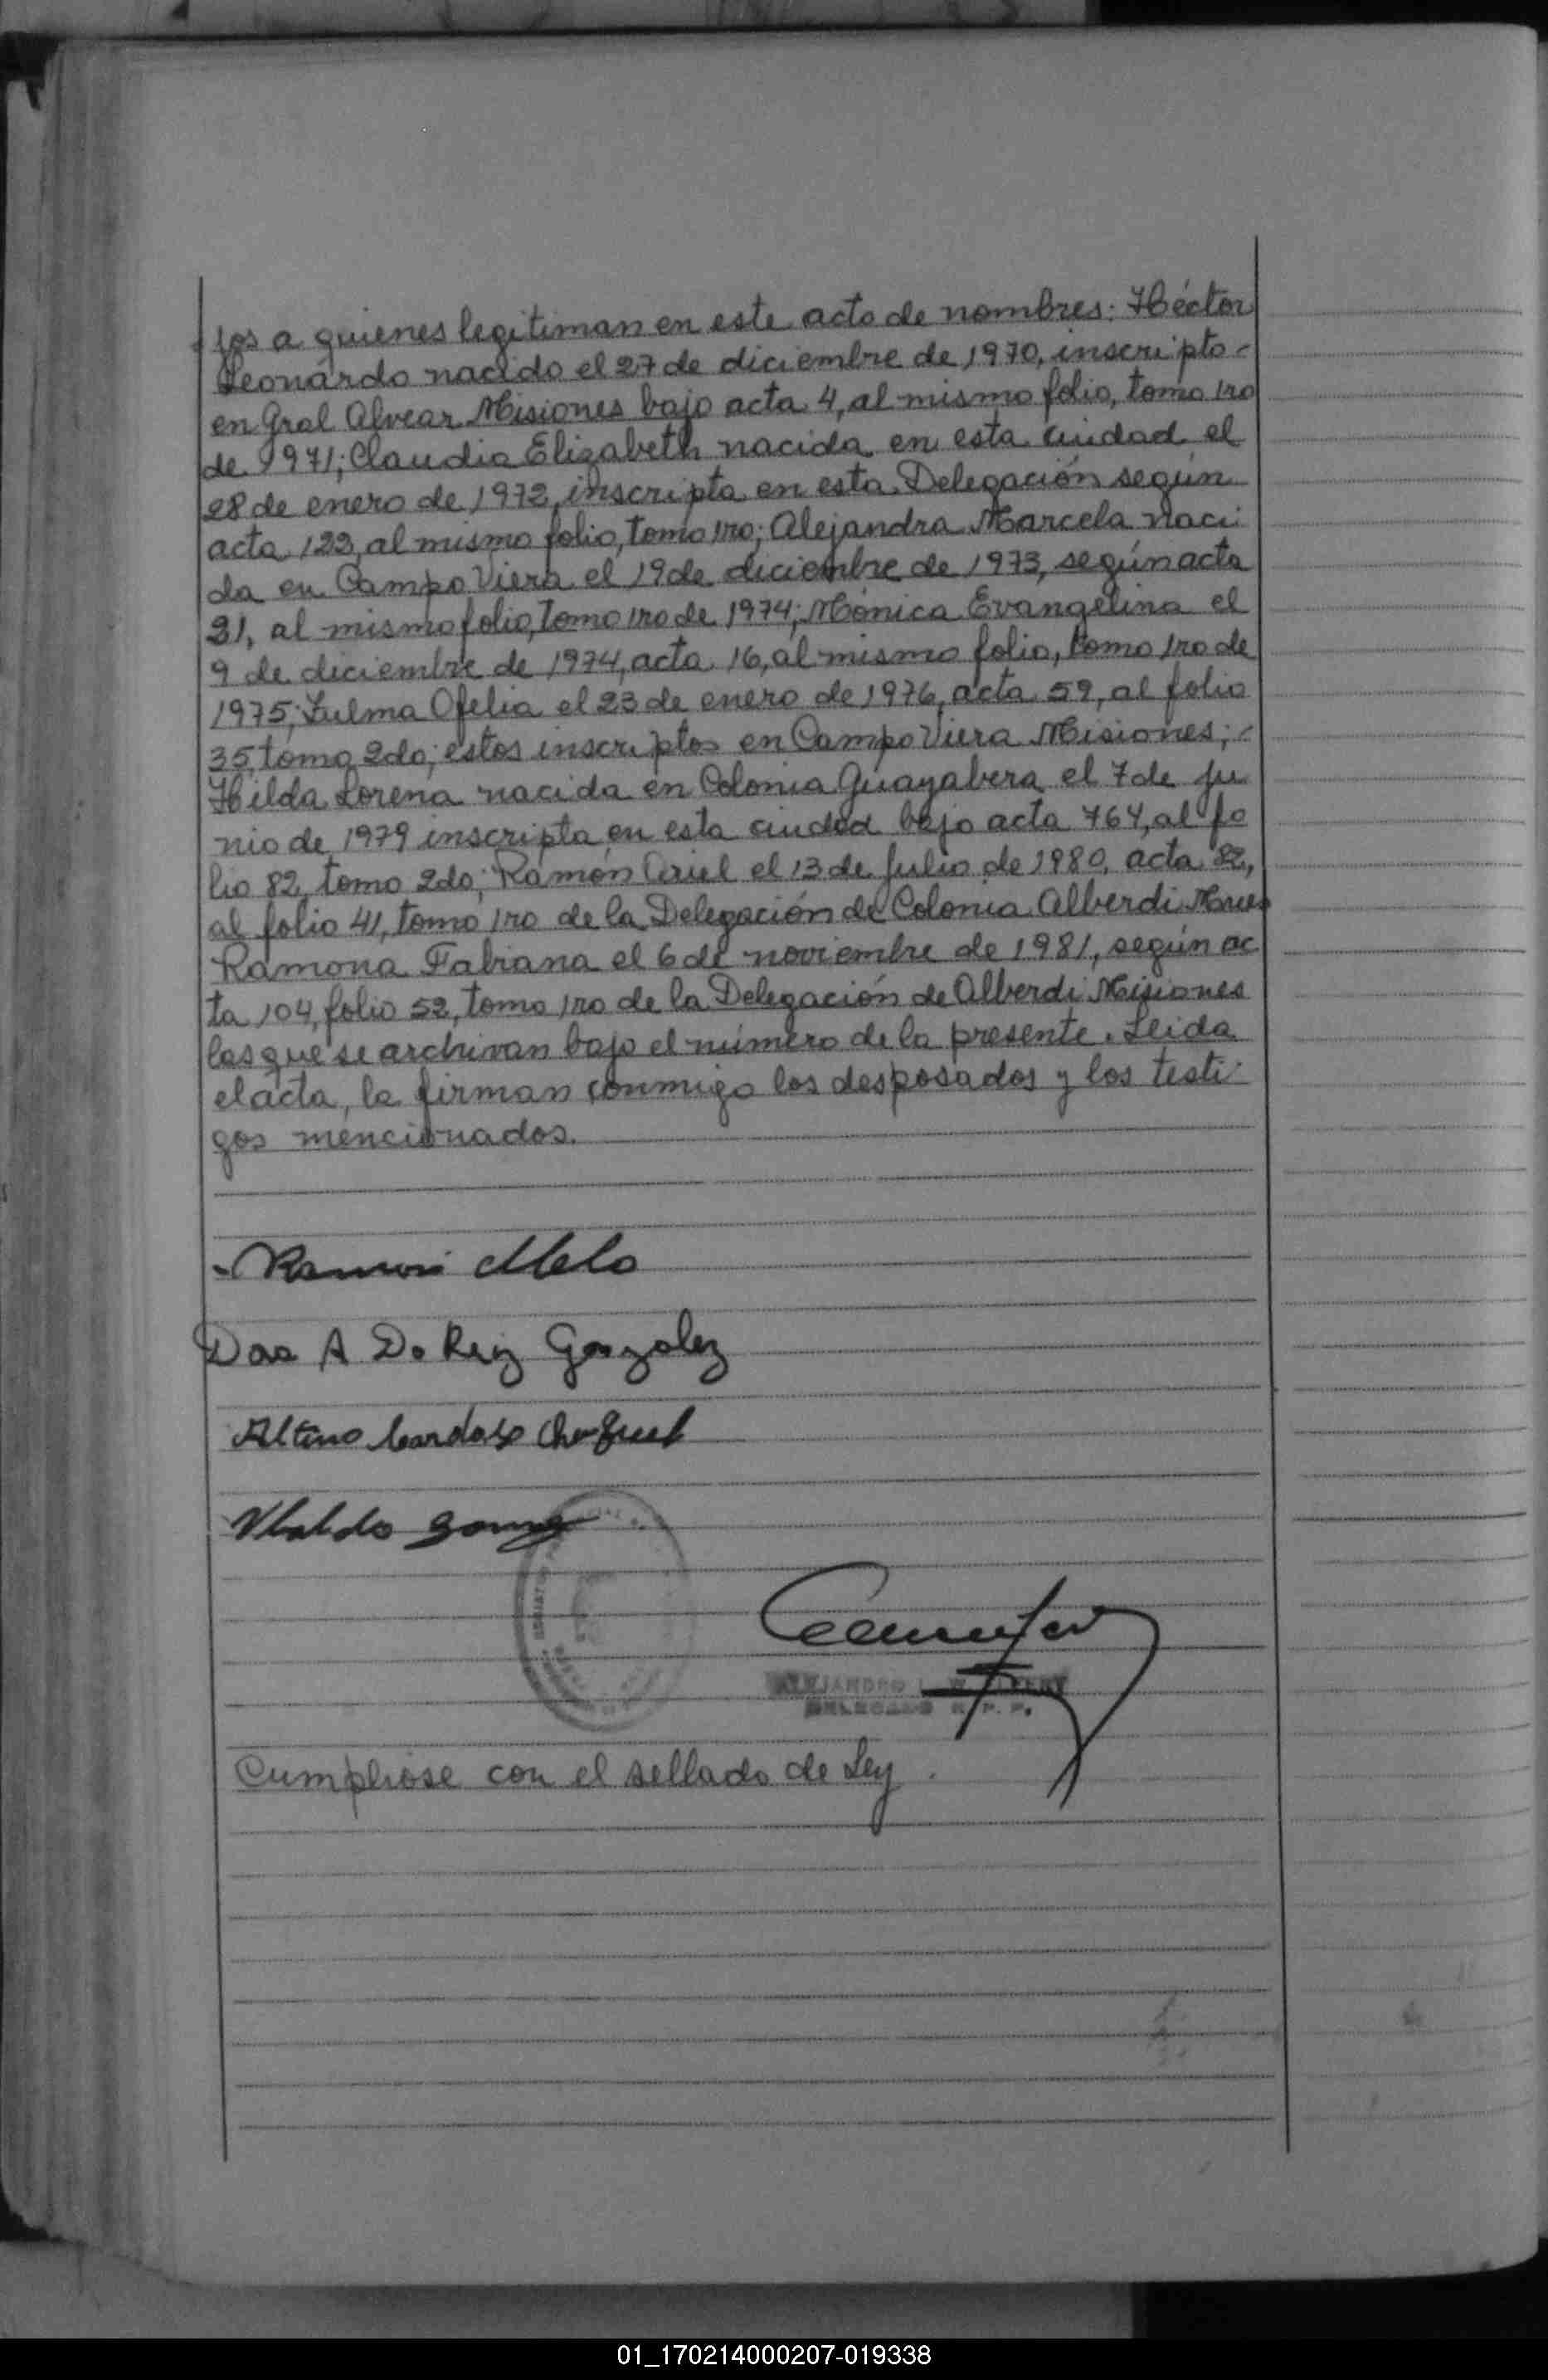 jos a quienes legitiman en este acto de nombres: Héctor
Leonardo nacido el 27 de diciembre de 1970, inscripto -
en Gral Alvear Misiones bajo acta 4, al mismo folio, tomo 1ro
de 1971; Claudia Elizabeth nacida en esta ciudad el
28 de enero de 1972, inscripta en esta Delegación según
acta 122, al mismo folio, tomo 1ro; Alejandra Marcela naci-
da en Campo Viera el 19 de diciembre de 1973, según acta
21, al mismo folio, tomo 1ro de 1974; Mónica Evangelina el
9 de diciembre de 1974, acta 16, al mismo folio, tomo 1ro de
1975; Zulma Ofelia el 23 de enero de 1976, acta 59, al folio
35, tomo 2do; estos inscriptos en Campo Viera Misiones; -
Hilda Lorena nacida en Colonia Guayabera el 7 de ju
nio de 1979 inscripta en esta ciudad bajo acta 764, al fo
lio 82, tomo 2do; Ramón Ariel el 13 de julio de 1980, acta 82,
al folio 41, tomo 1ro de la Delegación de Colonia Alberdi
Ramona Fabiana el 6 de noviembre de 1981, según ac
ta 104, folio 52, tomo 1ro de la Delegación de Alberdi Misiones
las que se archivan bajo el número de la presente. Leida
el acta, la firman conmigo los desposados y los testi-
gos mencionados.
Ramon Melo
A Do Rey Gonzalez
Altino Cardoso
Ubaldo Gomez
ALEJANDRO
DELEGADO R. P. P.
Cumpliose con el sellado de Ley.
01_170214000207-019338